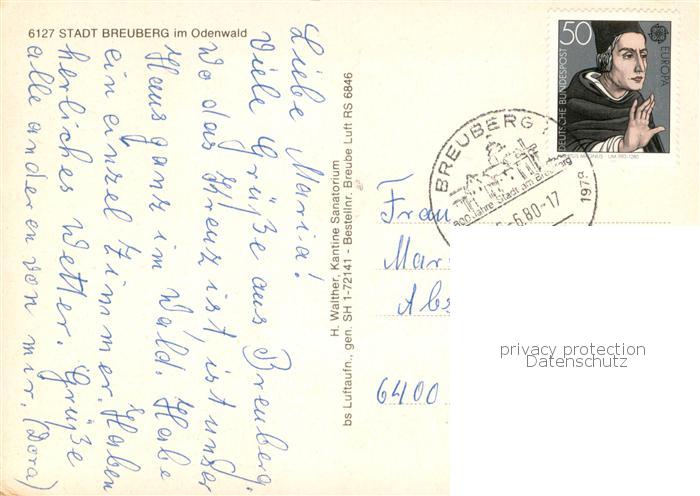 6127 STADT BREUBERG im Odenwald
Liebe Maria!
Viele Grüße aus Breuberg.
Wo das Kreuz ist, ist unser
Haus ganz im Wald. Habe
ein einzel Zimmer. Haben
herliches Wetter. Grüße
alle anderen von mir. (Dora)
H. Walther, Kantine Sanatorium
bs Luftaufn., gen. SH 1-72141 - Bestellnr. Breube Luft RS 6846
50
DEUTSCHE BUNDESPOST
EUROPA
BREUBERG 1
800 Jahre Stadt am Breuberg
.6.80-17
Frau
Mar
Abs
6400
privacy protection
Datenschutz